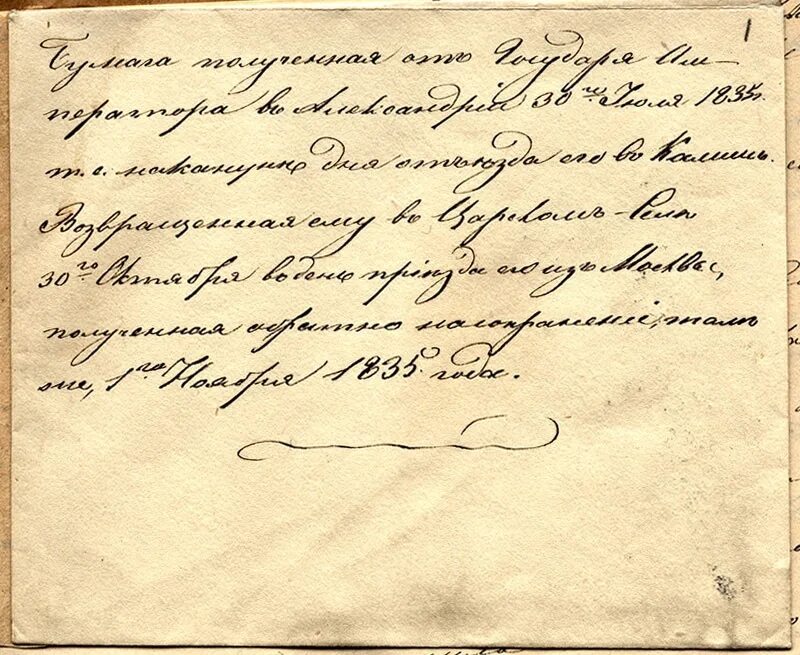 1
Бумага полученная отъ Государя Им-
ператора въ Александріи 30го Іюля 1835г.
т.е. наканунѣ дня отъѣзда его въ Калишъ.
Возвращенная ему въ Царскомъ-Селѣ
30го Октября въ день пріѣзда его изъ Москвы,
полученная обратно на сохраненіе, тамъ
же, 1го Ноября 1835 года.